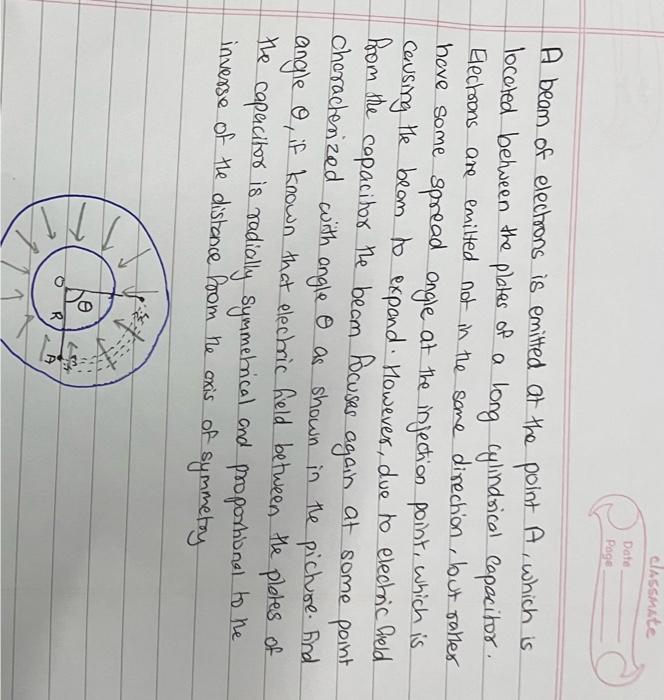 classmate
Date
Page
A beam of electrons is emitted at the point A, which is
located between the plates of a long cylindrical capacitor.
Electrons are emitted not in the same direction, but rather
have some spread angle at the injection point, which is
causing the beam to expand. However, due to electric field
from the capacitor the beam focuses again at some point
characterized with angle θ as shown in the picture. Find
angle θ, if known that electric field between the plates of
the capacitor is radially symmetrical and proportional to the
inverse of the distance from the axis of symmetry
θ
O
R
A